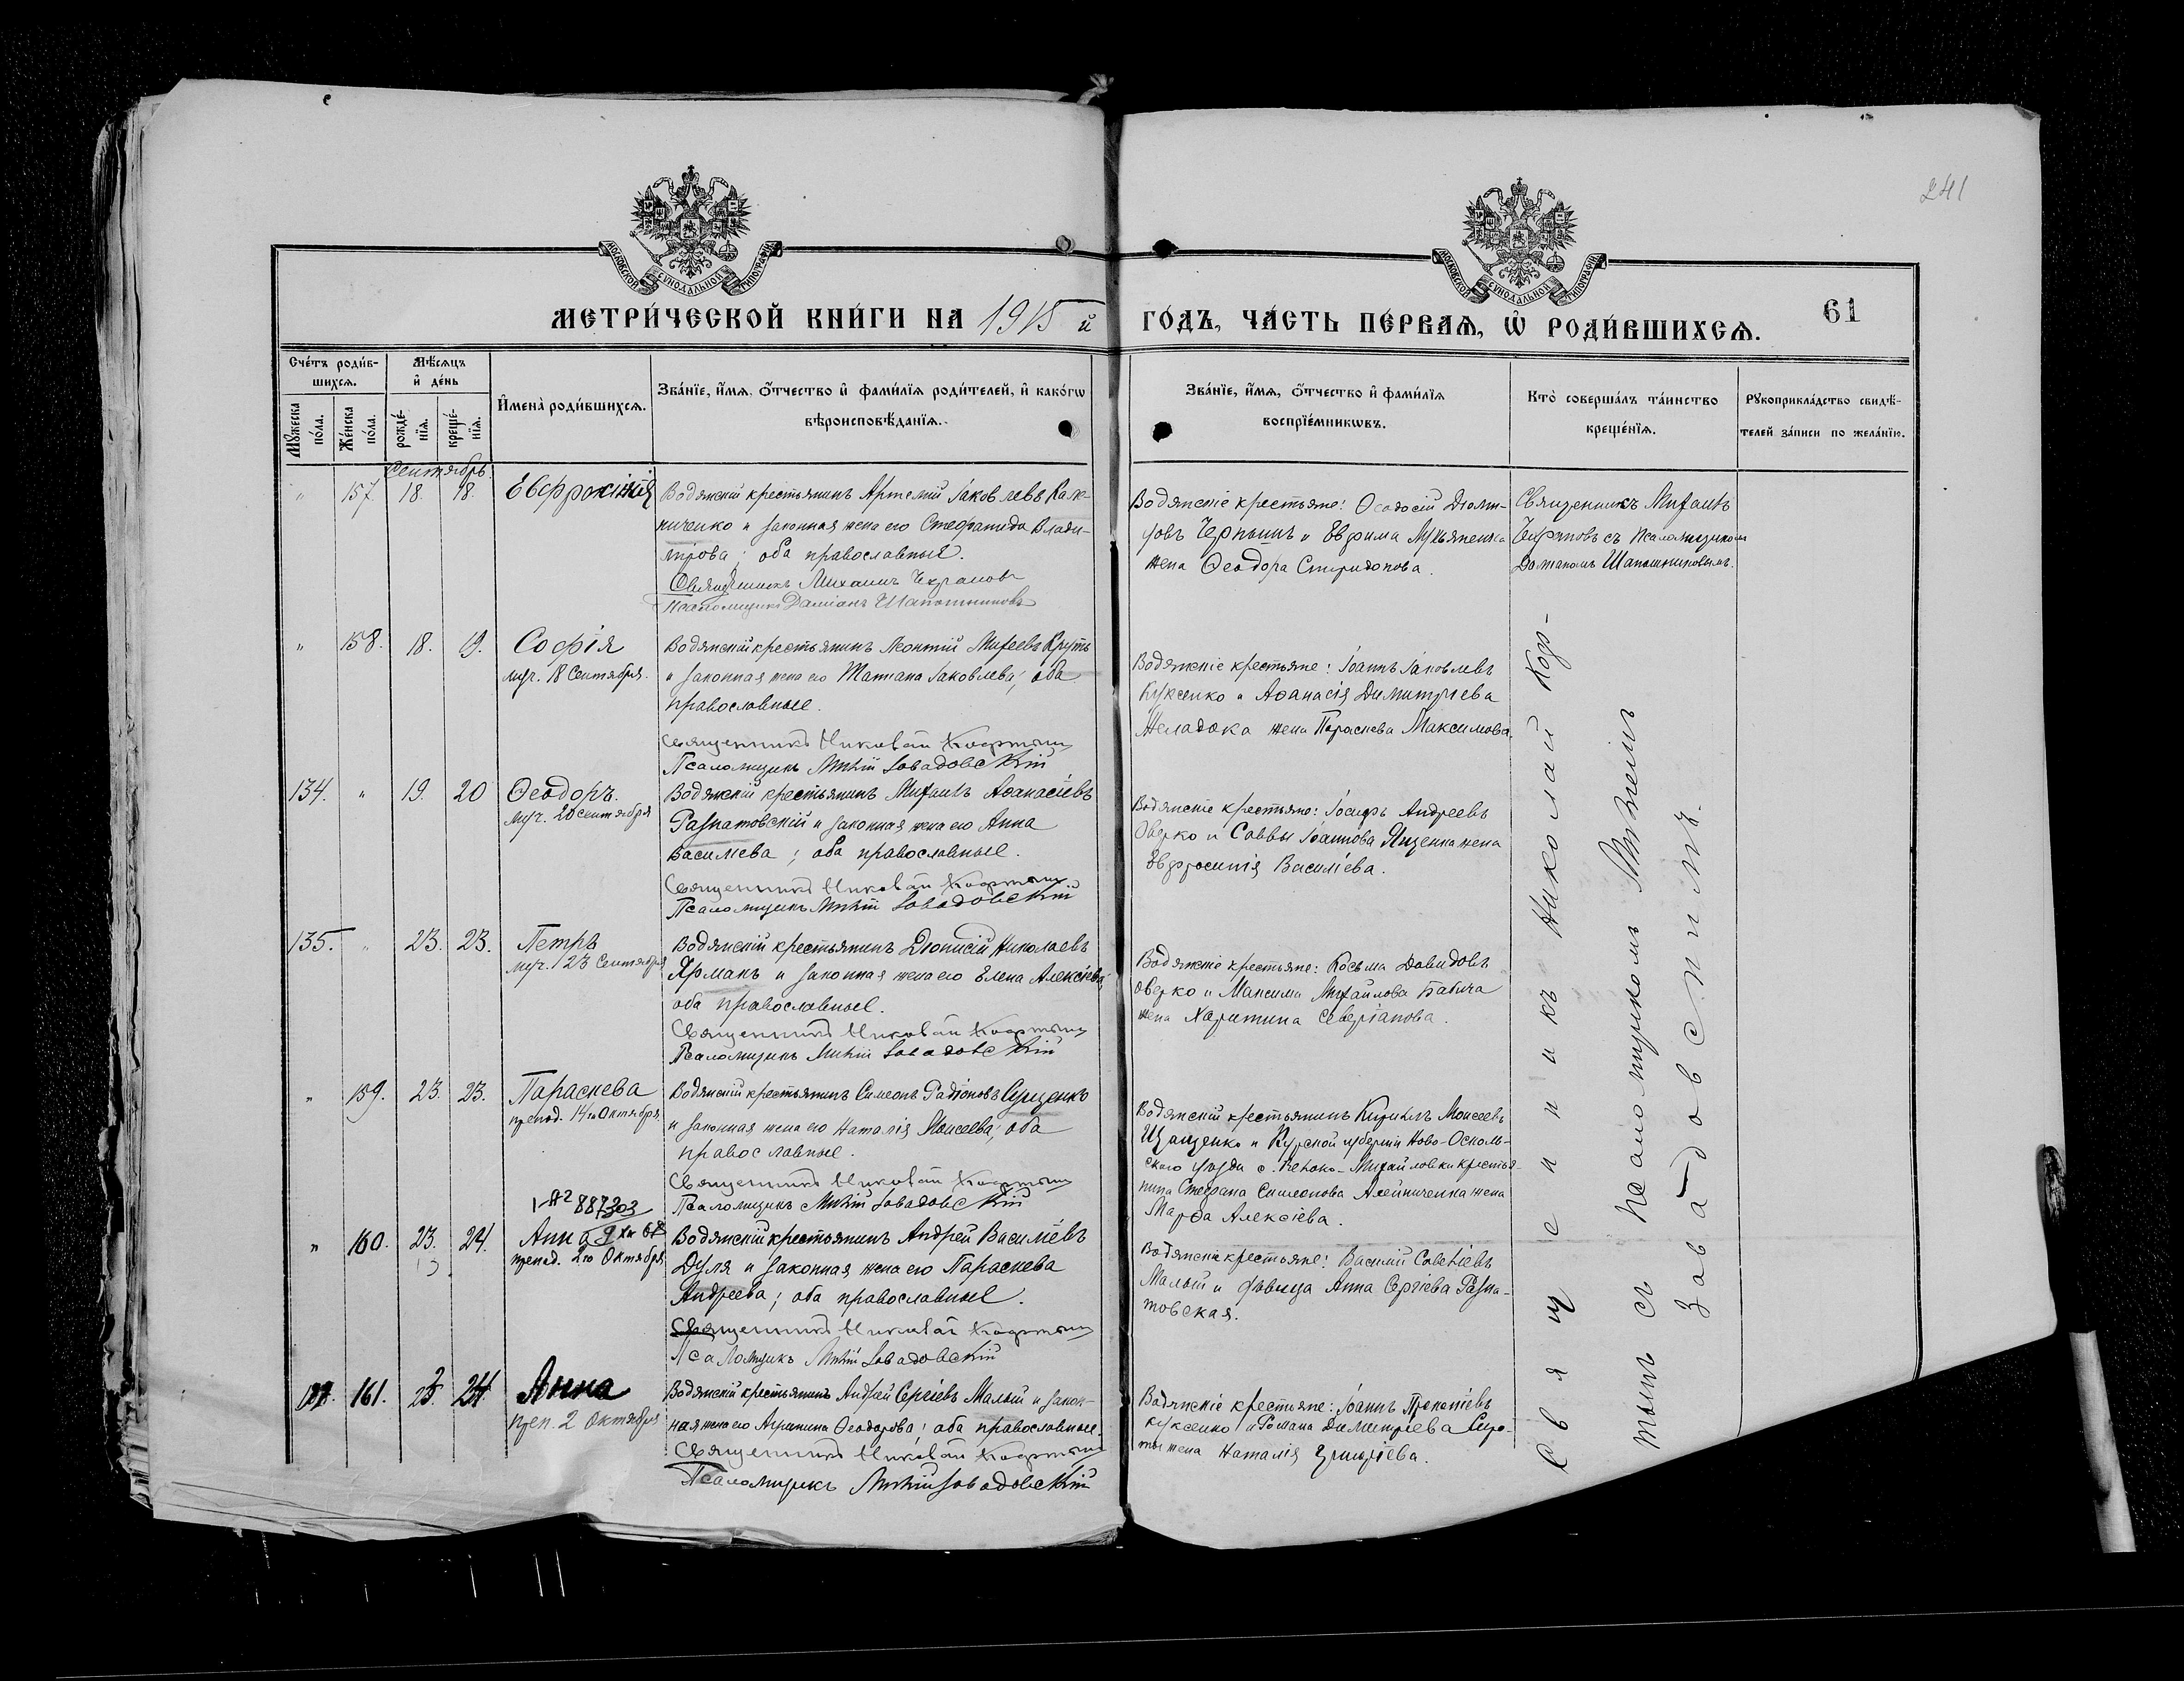 241
МОСКОВСКОЙ СѴНОДАЛЬНОЙ ТИПОГРАФІИ
МОСКОВСКОЙ СѴНОДАЛЬНОЙ ТИПОГРАФІИ
МЕТРИ́ЧЕСКОЙ КНИ́ГИ НА 1915 й ГО́ДЪ, ЧА́СТЬ ПЕ́РВАѦ, Ѡ҆ РОДИ́ВШИХСѦ. 61
Сче́тъ роди́в-
шихсѧ.
Мѣ́сѧцъ
и҆ де́нь
Мꙋ́жеска
по́ла.
Же́нска
по́ла.
рожде́-
нїѧ.
креще́-
нїѧ.
И҆мена̀ роди́вшихсѧ.
Зва́нїе, и҆́мѧ, ѻ҆́тчество и҆ фами́лїѧ роди́телей, и҆ како́гѡ
вѣроисповѣ́данїѧ.
Зва́нїе, и҆́мѧ, ѻ҆́тчество и҆ фами́лїѧ
воспрїе́мникѡвъ.
Кто̀ соверша́лъ та́инство
креще́нїѧ.
Рꙋкоприкла́дство свидѣ́-
телей за́писи по жела́нїю.
Сентябрь
" 157. 18. 18. Евфросинія
Водянскій крестьянинъ Артемій Іаковлевъ Каж-
ниченко и законная жена его Стефанида
; оба православные.
Священникъ Михаилъ Чефрановъ
Псаломщикъ Даміанъ Шапошниковъ
Водянскіе крестьяне: Ѳеодосій
Чернышъ и Ефима Лукьяненка
жена Ѳеодора Спиридонова.
Священникъ Михаилъ
Чефрановъ съ псаломщикомъ
Даміаномъ Шапошниковымъ.
" 158. 18. 19. Софія
муч. 18 Сентября.
Водянскій крестьянинъ Леонтій Михеевъ Круть
и законная жена его Татіана Іаковлева; оба
православные.
Священникъ Николай
Псаломщикъ Михій Завадовскій
Водянскіе крестьяне: Іоаннъ Іаковлевъ
Куксенко и Аѳанасія Димитріева
Желадока жена Параскева Максимова.
134. " 19. 20 Ѳеодоръ.
муч. 20 Сентября
Водянскій крестьянинъ Михаилъ Аѳанасіевъ
Разнатовскій и законная жена его Анна
Василіева; оба православные.
Священникъ Николай
Псаломщикъ Михій Завадовскій
Водянскіе крестьяне: Іосифъ Андреевъ
Оверко и Саввы Іоаннова Яценка жена
Евфросинія Василіева.
135. " 23. 23. Петръ
муч. 23 Сентября
Водянскій крестьянинъ Діонисій Николаевъ
Ярмакъ и законная жена его Елена Алексіева,
оба православные.
Священникъ Николай
Псаломщикъ Михій Завадовскій
Водянскіе крестьяне: Косьма Давидовъ
Оверко и Максима Михайлова Бабича
жена Харитина Северіанова.
" 159. 23. 23. Параскева
препод. 14го Октября
Водянскій крестьянинъ Симеонъ Радіоновъ Сущенко
и законная жена его Наталія Моисеева; оба
православные.
Священникъ Николай
Псаломщикъ Михій Завадовскій
Водянскій крестьянинъ Кириллъ Моисеевъ
Цаценко и Курской губерніи Ново-Осколь-
скаго уѣзда с. Михайловки крестья-
нина Стефана Симеонова Алейниченка жена
Марѳа Алексіева.
887303
" 160. 23. 24. Анна
препод. 2го Октября
Водянскій крестьянинъ Андрей Василіевъ
Дуля и законная жена его Параскева
Андреева; оба православные.
Священникъ Николай
Псаломщикъ Михій Завадовскій
Водянскіе крестьяне: Василій Савеліевъ
Малый и дѣвица Анна Сергіева Разна-
товская.
161. 23. 24 Анна
преп. 2 Октября
Водянскій крестьянинъ Андрей Сергіевъ Малый и закон-
ная жена его Агрипина Ѳеодорова; оба православные.
Священникъ Николай
Псаломщикъ Михій Завадовскій
Водянскіе крестьяне: Іоаннъ Прокопіевъ
Куксенко и Романа Димитріева Сиро-
ты жена Наталія Григоріева.
Священникъ Николай Кор-
тынъ съ псаломщикомъ Михіемъ
Завадовскимъ.